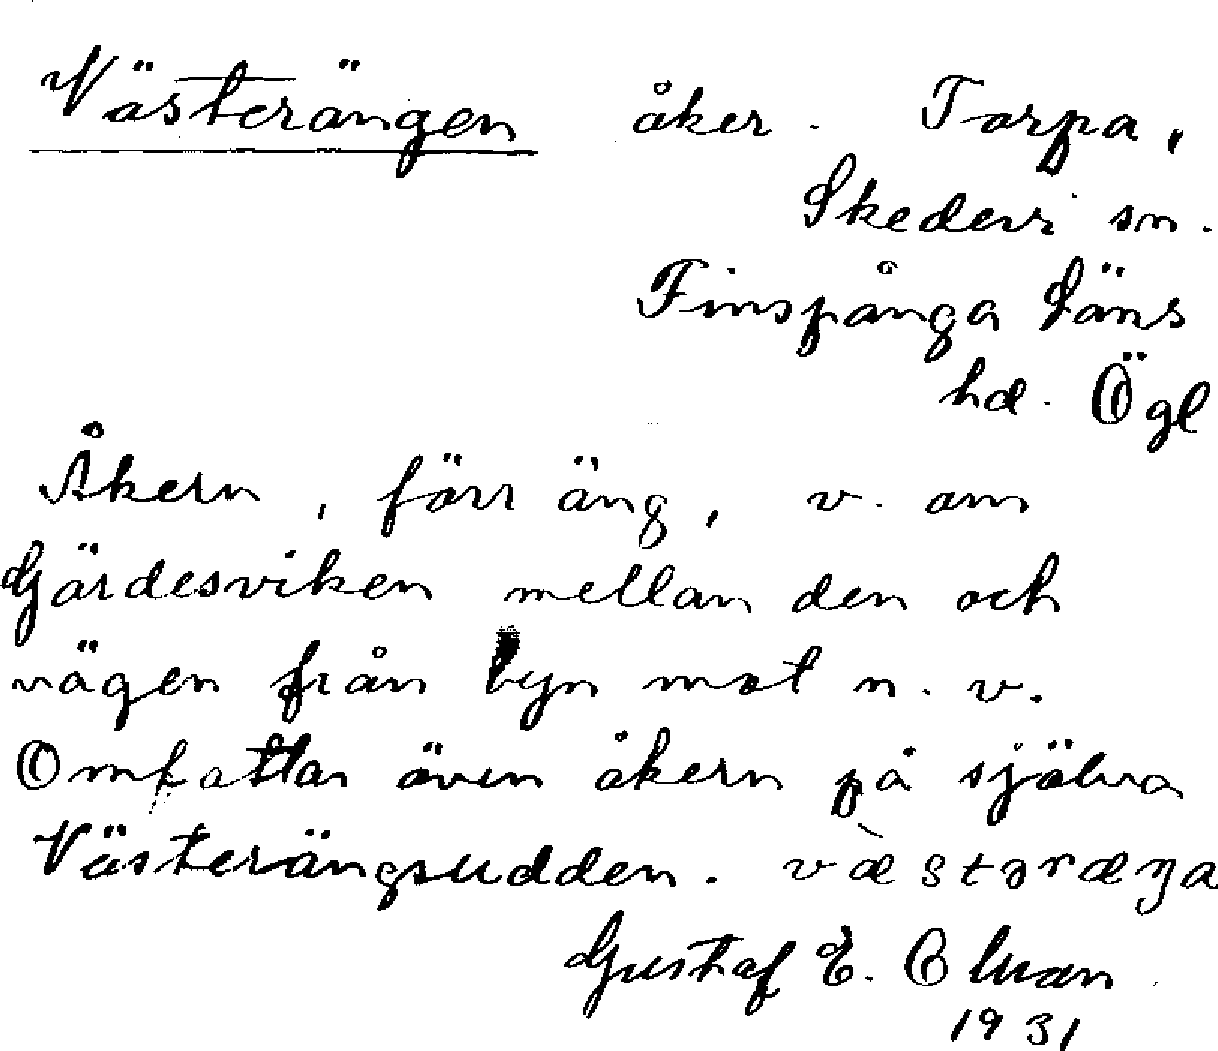 Västerängen åker. Torpa,
Skedevi sn.
Finspånga Läns
hd. Ögl
Åkern, förr äng, v. om
Gärdesviken mellan den och
vägen från byn mot n. v.
Omfattar även åkern på själva
Västerängsudden. væ̀stəræŋa
Gustaf E.
1931